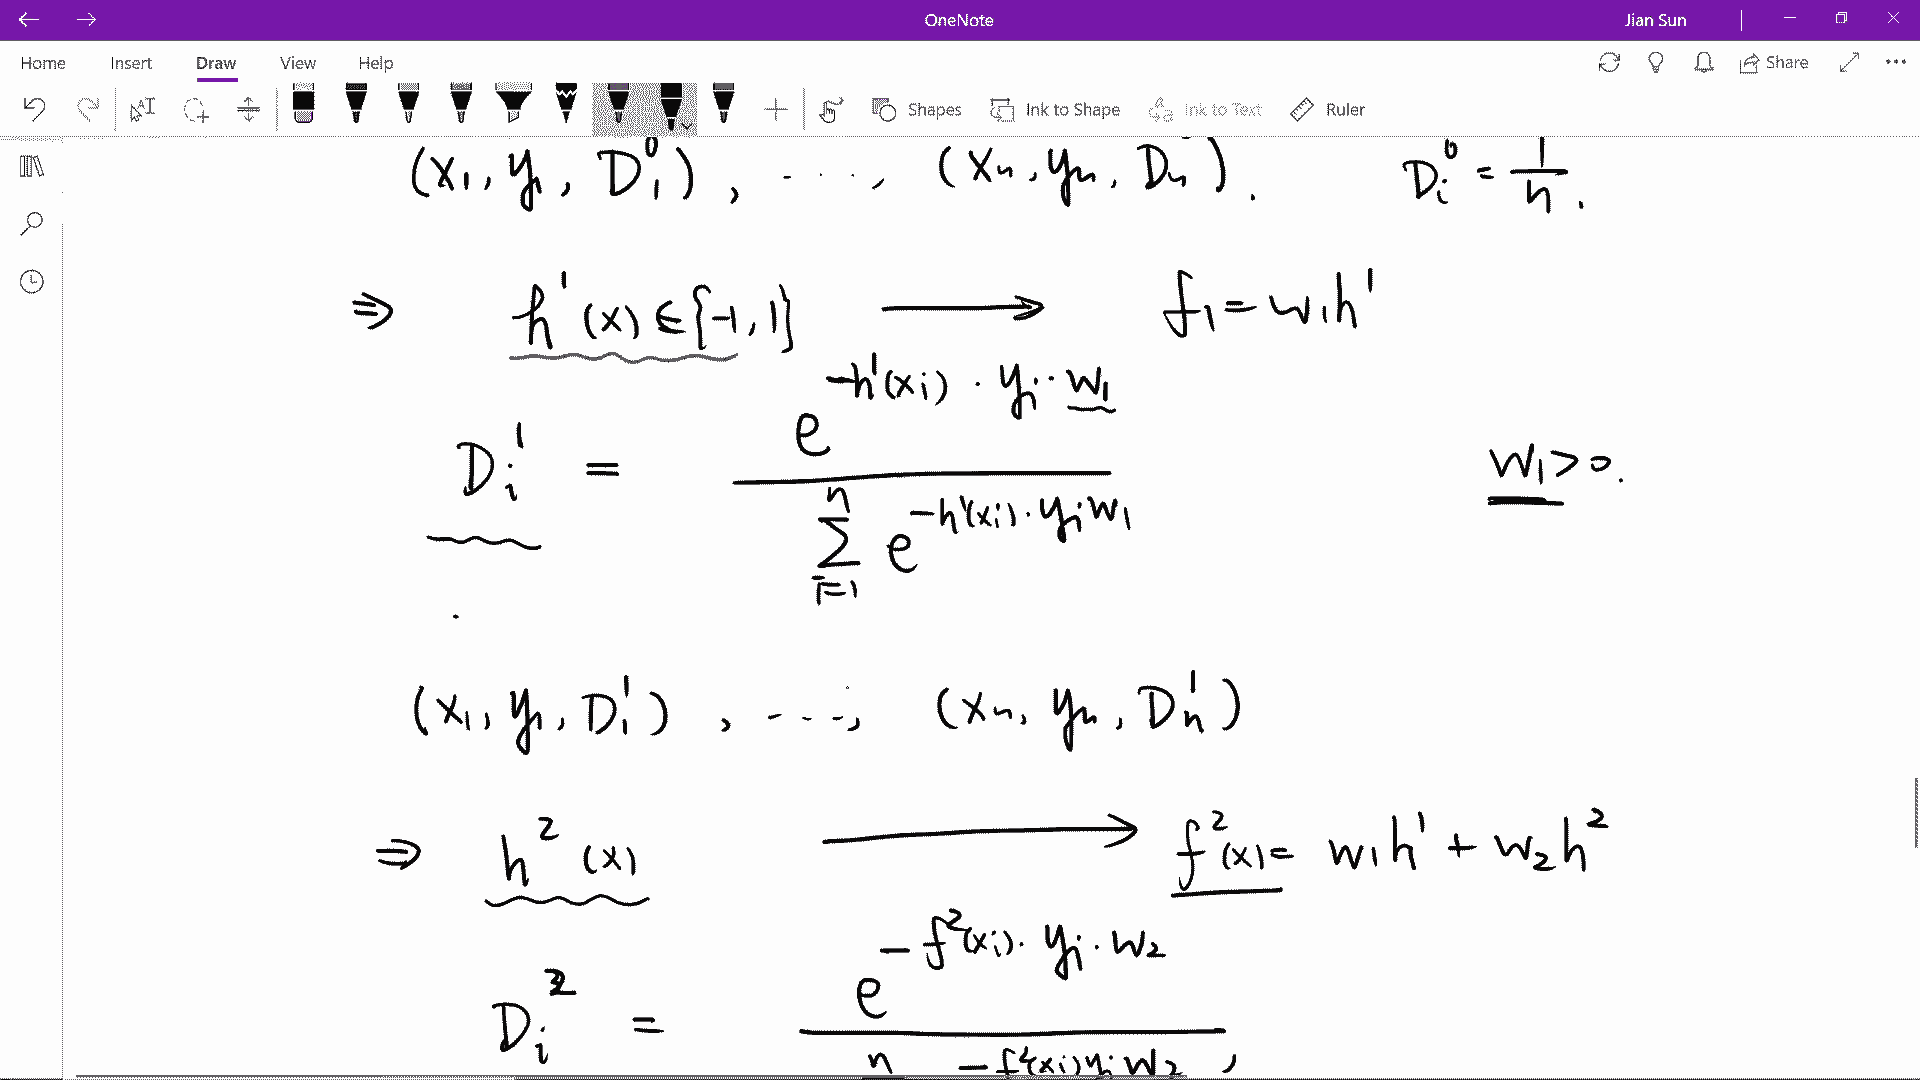 OneNote
Jian Sun
Home Insert Draw View Help
Share
Shapes Ink to Shape Ink to Text Ruler
(x₁, y₁, D₁⁰), ...., (xₙ, yₙ, Dₙ⁰). Dᵢ⁰ = 1/n.
⇒ h¹(x) ∈ {-1, 1} ⟶ f₁ = w₁h¹
Dᵢ¹ = e^{-h¹(xᵢ)·yᵢ·w₁} / ∑_{i=1}^{n} e^{-h¹(xᵢ)·yᵢw₁} w₁>0.
(x₁, y₁, D₁¹), ...., (xₙ, yₙ, Dₙ¹)
⇒ h²(x) ⟶ f²(x) = w₁h¹ + w₂h²
Dᵢ² = e^{-f²(xᵢ)·yᵢ·w₂}
n -f²(xᵢ)yᵢw₂,